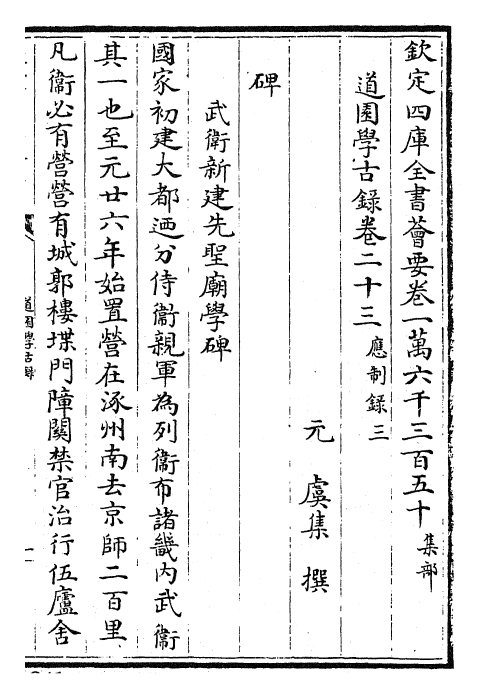 欽定四庫全書薈要卷一萬六千三百五十 集部
道園學古錄卷二十三 應制錄三
元 虞集 撰
碑
武衛新建先聖廟學碑
國家初建大都廼分侍衞親軍為列衞布諸畿内武衞
其一也至元廿六年始置營在涿州南去京師二百里
凡衞必有營營有城郭樓堞門障關禁官治行伍廬舍
道園學古錄
一